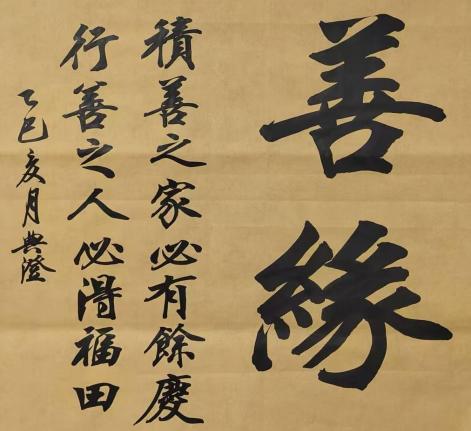 善緣
積善之家必有餘慶
行善之人必得福田
乙巳亥月典澄